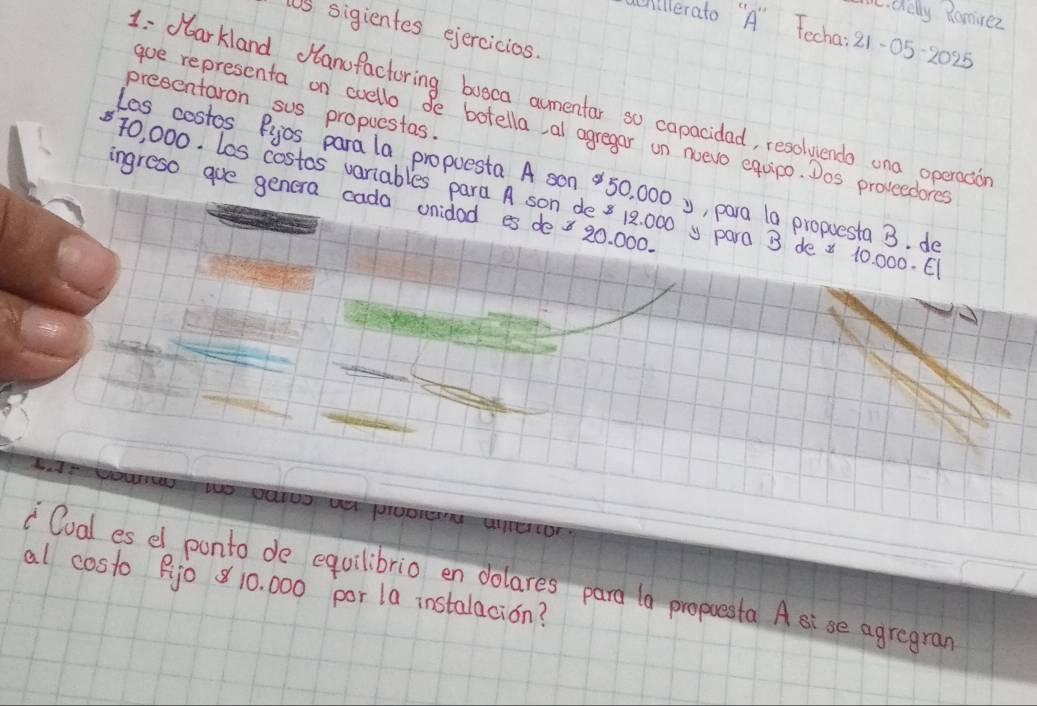 los sigientes ejercicios.
"A" Fecha: 21-05-2025
Ramirez
1:- Markland Manofacturing busca aumentar so capacidad, resolviendo una operación
que representa un cuello de botella, al agregar un nuevo equipo. Dos proveedores
presentaron sus propuestas.
Los costos fijos para la propuesta A son $50,000 y, para la propuesta B. de
$70,000. Los costos variables para A son de $12.000 y para B de $10.000. El
ingreso que genera cada unidad es de $20.000.
los datos del problema anterior.
¿Cual es el punto de equilibrio en dolares para la propuesta A si se agregran
al costo fijo $10.000 por la instalación?